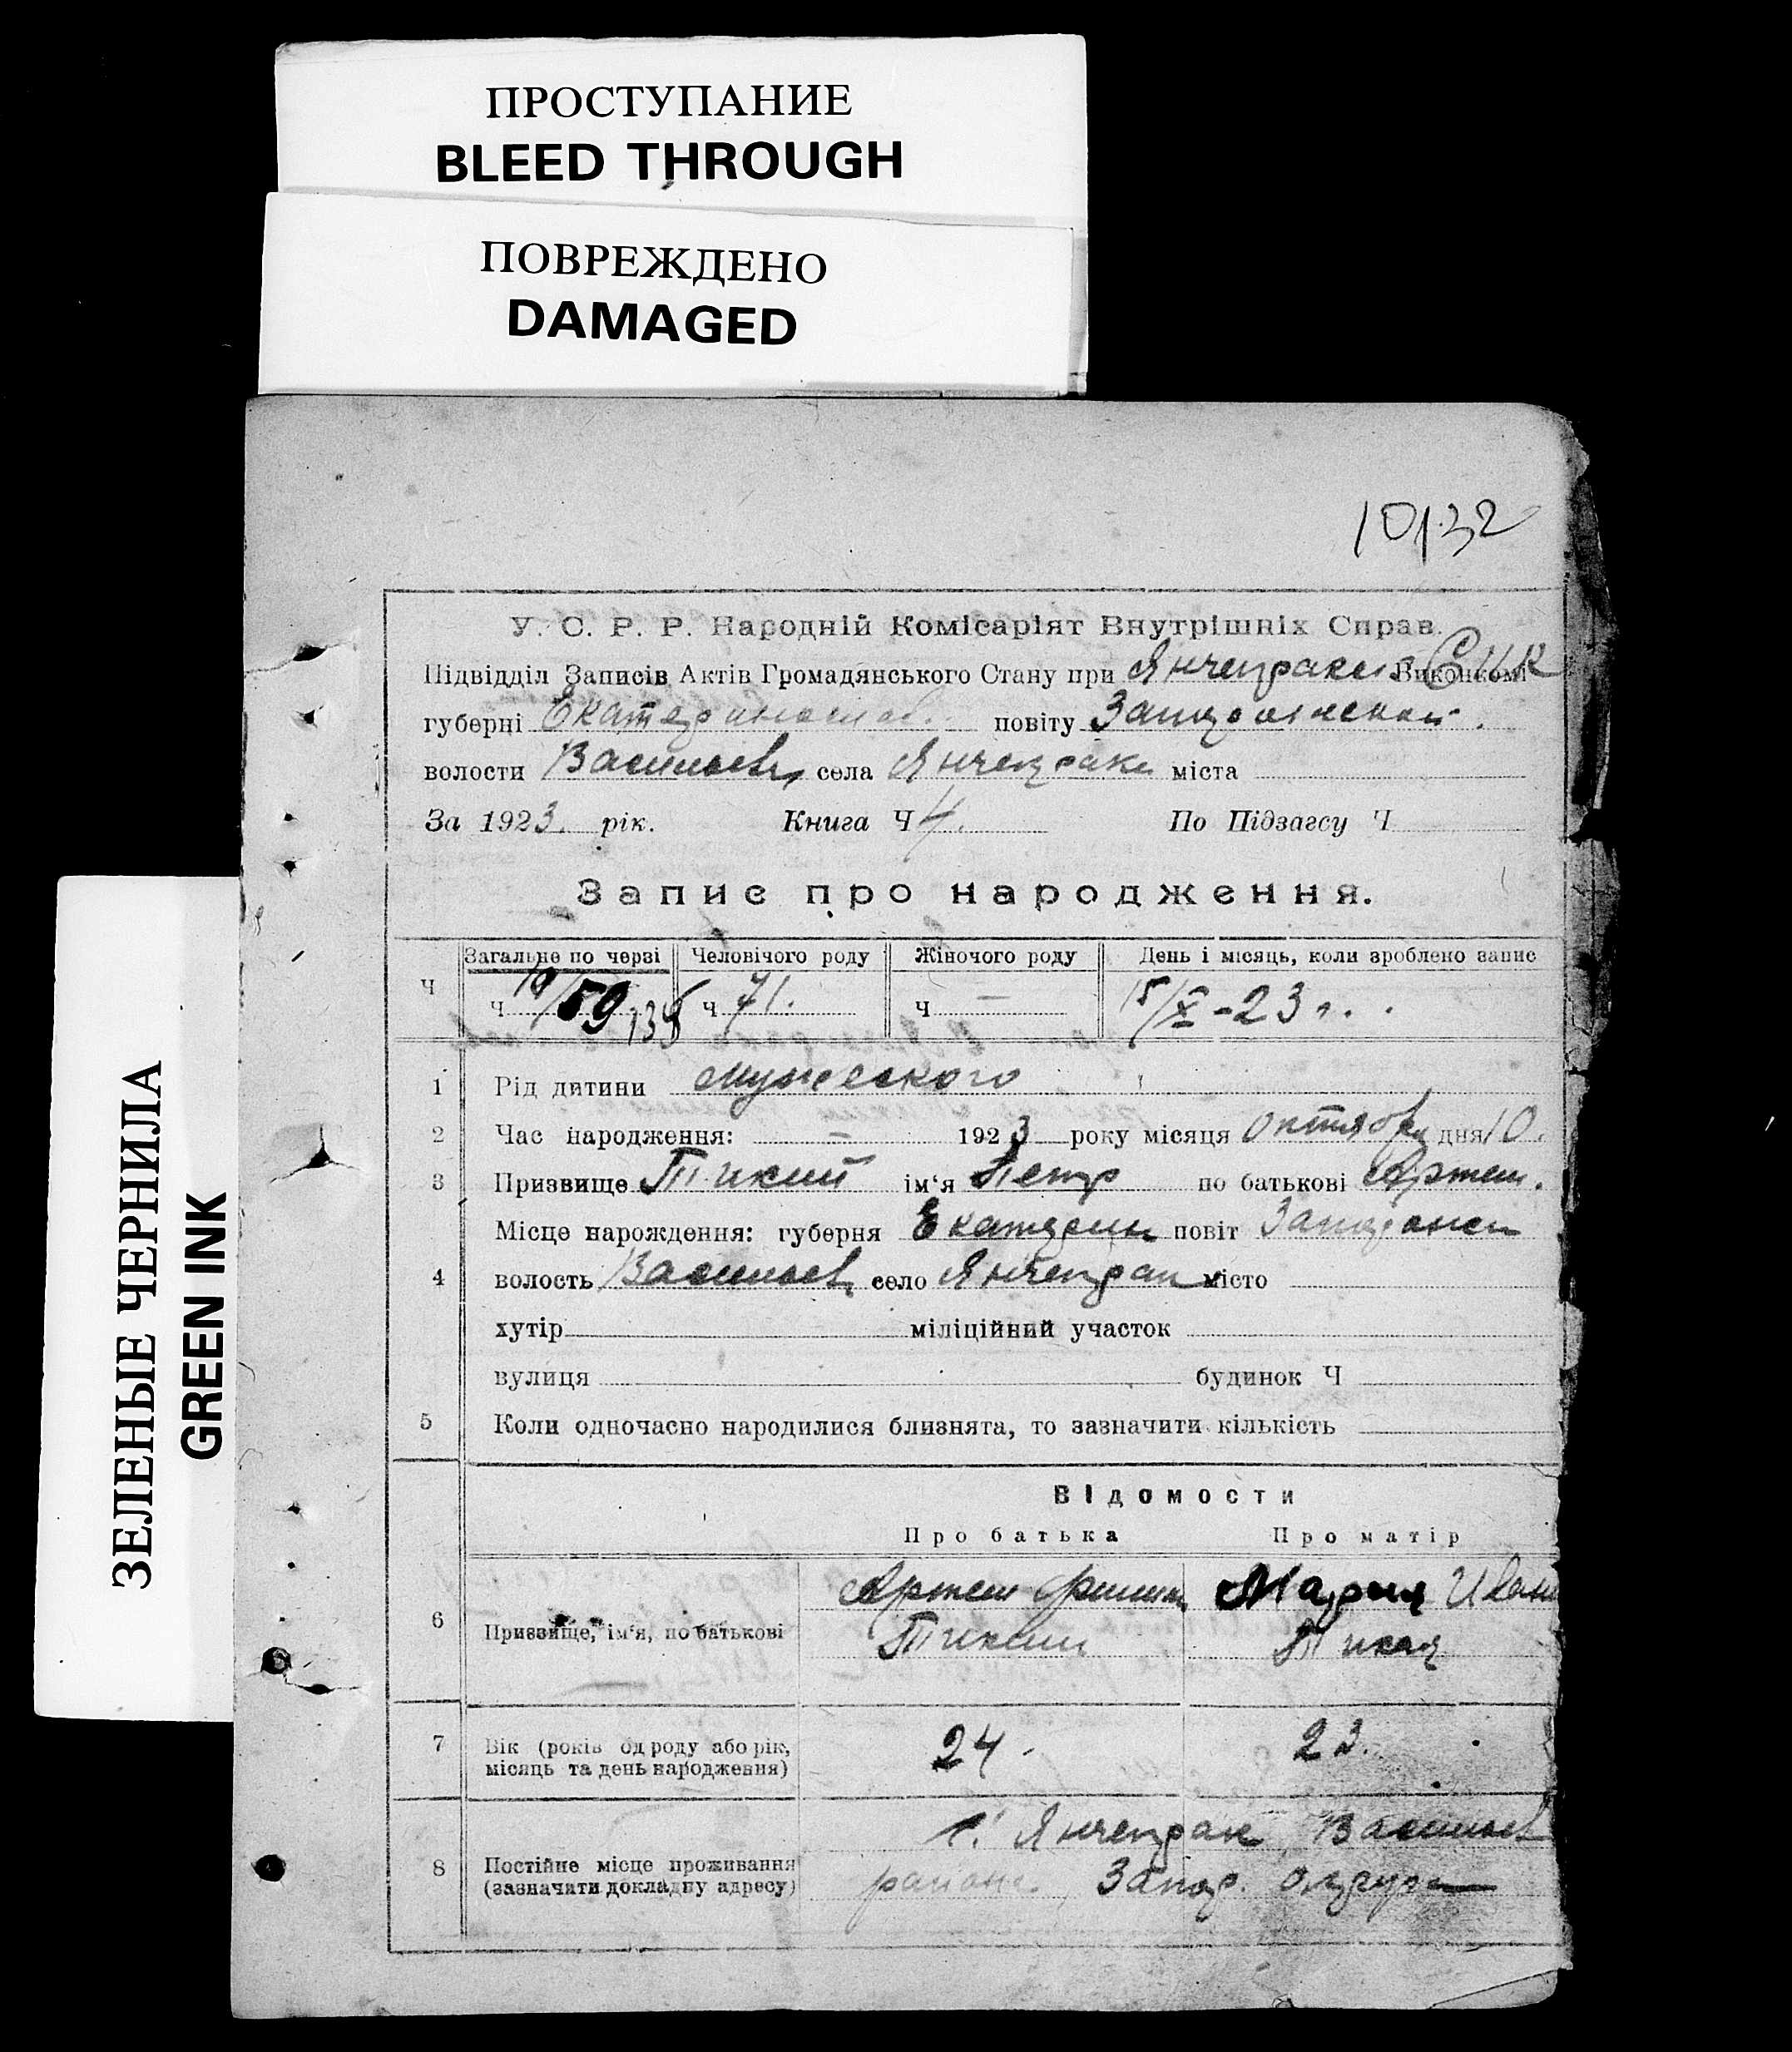 ПРОСТУПАНИЕ
BLEED THROUGH
ПОВРЕЖДЕНО
DAMAGED
ЗЕЛЕНЫЕ ЧЕРНИЛА
GREEN INK
10132
У. С. Р. Р. Народній Комісаріят Внутрішніх Справ.
Підвідділ Записів Актів Громадянського Стану при Янчекракск. Виконкомі
губерні Екатеринослав. повіту Запорожской.
волости Васильев, села Янчекрак міста
За 1923. рік. Книга Ч 4. По Підзагсу Ч
Запис про народження.
Загальне по черзі Человічого роду Жіночого роду День і місяць, коли зроблено запис
Ч Ч 59 138 Ч 71. Ч — 15/X - 23 г.
1 Рід дитини мужеского
2 Час народження: — 1923 року місяця октября дня 10.
3 Призвище Тикий ім'я Петр по батькові Артем.
Місце нарождення: губерня Екатерин повіт Запорожск
4 волость Васильев село Янчекрак місто
хутір міліційний участок
вулиця будинок Ч
5 Коли одночасно народилися близнята, то зазначити кількість
Відомости
Про батька Про матір
Артем Филип Мария Иван
6 Призвище, ім'я, по батькові Тикий Тикая
7 Вік (років од роду або рік, 24. 23.
місяць та день народження)
с. Янчекрак Васильев
8 Постійне місце проживання района. Запор. округа
(зазначити докладну адресу)